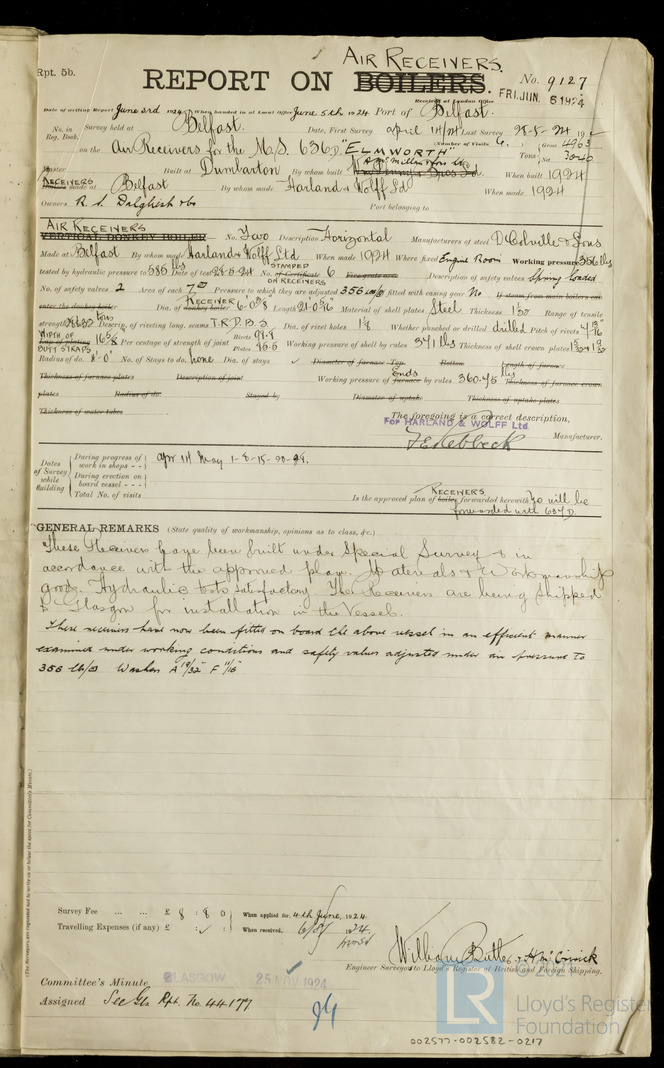 Rpt. 5b.
AIR RECEIVERS.
REPORT ON BOILERS.
No. 9127
Received at London Office FRI. JUN. 6 1924
Date of writing Report June 3rd 1924 When handed in at Local Office June 5th 1924 Port of Belfast.
No. in Reg. Book. Survey held at Belfast. Date, First Survey April 14/24 Last Survey 28-5-24 19
(Number of Visits 6.) Gross 4963
on the Air Receivers for the M.S. 636D "ELMWORTH" Tons Net 3040
Master Built at Dumbarton By whom built A. McMillan & Son Ld When built 1924
RECEIVERS made at Belfast By whom made Harland & Wolff Ld When made 1924
Owners R. S. Dalgliesh Port belonging to
AIR RECEIVERS
VERTICAL DONKEY BOILER No. Two Description Horizontal Manufacturers of steel D Colville & Sons
Made at Belfast By whom made Harland & Wolff Ltd When made 1924 Where fixed Engine Room Working pressure 356 lbs
tested by hydraulic pressure to 585 lbs Date of test 28-5-24 No. of Certificate STAMPED ON RECEIVERS 6 Fire grate area Description of safety valves Spring loaded
No. of safety valves 2 Area of each Pressure to which they are adjusted 356 fitted with easing gear No If steam from main boilers can
enter the donkey boiler Dia. of donkey boiler RECEIVER Length Material of shell plates Steel Thickness Range of tensile
strength tons Descrip. of riveting long. seams T.R.D.B.S. Dia. of rivet holes Whether punched or drilled drilled Pitch of rivets
WIDTH OF BUTT STRAPS Lap of plating Per centage of strength of joint Rivets Plates Working pressure of shell by rules 371 lbs Thickness of shell crown plates
Radius of do. No. of Stays to do. none Dia. of stays Diameter of furnace Top Bottom Length of furnace
Thickness of furnace plates Description of joint Working pressure of furnace Ends by rules 360.75 lbs Thickness of furnace crown
plates Radius of do. Stayed by Diameter of uptake Thickness of uptake plates
Thickness of water tubes
The foregoing is a correct description,
FOR HARLAND & WOLFF Ltd.
F E Rebbeck Manufacturer.
Dates of Survey while building
During progress of work in shops - - Apr 14 May 1-8-15-20-28.
During erection on board vessel - - -
Total No. of visits
Is the approved plan of boiler RECEIVERS forwarded herewith No will be
forwarded with 637D.
GENERAL REMARKS (State quality of workmanship, opinions as to class, &c.)
These Receivers have been built under Special Survey & in
accordance with the approved plan. Materials & Workmanship
good. Hydraulic tests satisfactory. The Receivers are being shipped
to Glasgow for installation in the Vessel.
These receivers have now been fitted on board the above vessel in an efficient manner
examined under working conditions and safety valves adjusted under air pressure to
356 lb/□" Washers A 19/32" F 11/16"
(The Surveyors are requested not to write on or below the space for Committee's Minute.)
Survey Fee ... ... £ 8 : 8 : 0 When applied for, 4th June, 1924
Travelling Expenses (if any) £ : : When received, 6/8/ 1924
William Butler & H Mc Cormick
Engineer Surveyor to Lloyd's Register of British and Foreign Shipping.
Committee's Minute GLASGOW 25 NOV 1924
Assigned See Gls Rpt. No. 44177
© 2021
LR
Lloyd's Register
Foundation
002577-002582-0217